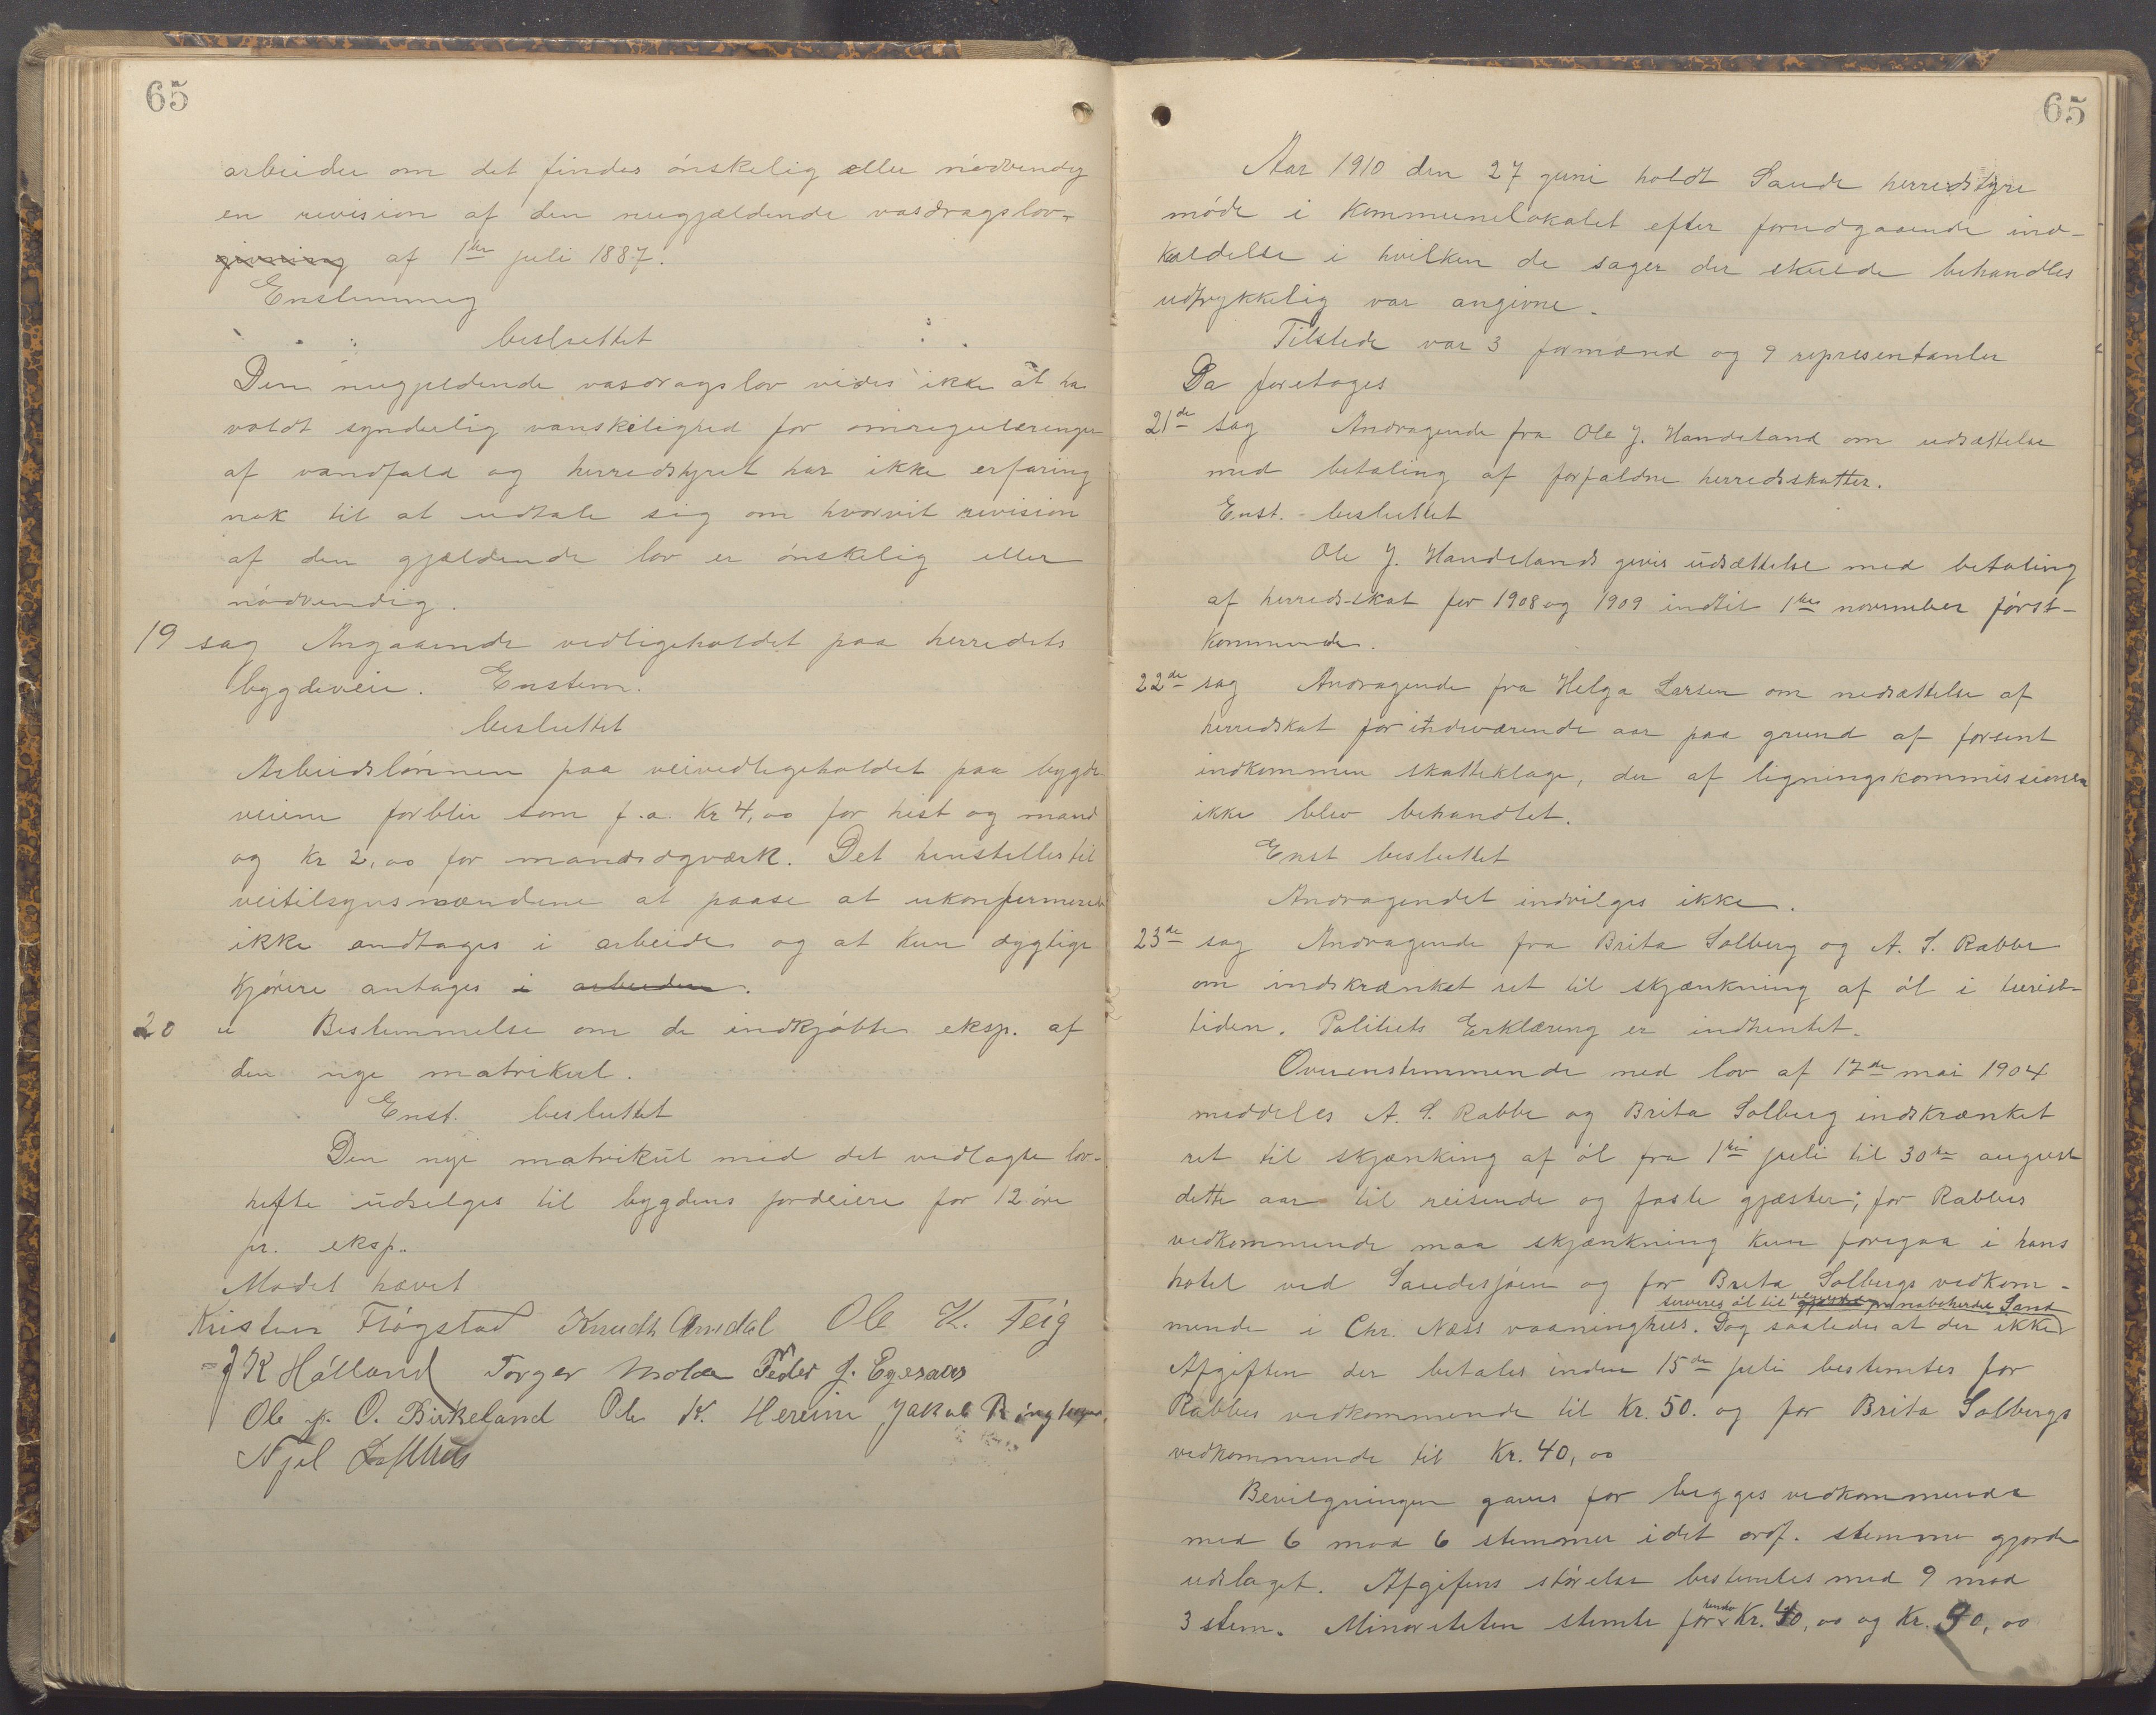 65
arbeider om det findes ønskelig eller nødvendig
en revision af den nugjældende vasdragslov-
givning af 1ste juli 1887.
Enstemmig
besluttet
Den nugjeldende vasdragslov vides ikke at ha
voldt synderlig vanskelighed for omreguleringer
af vandfald og herredstyret har ikke erfaring
nok til at udtale sig om hvorvit revision
af den gjældende lov er ønskelig eller
nødvendig.
19 sag Angaaende vedligeholdet paa herredets
bygdeveie. Enstem.
besluttet
Arbeidslønnen paa veivedligeholdet paa bygde-
veiene forblir som f.a. Kr 4,00 for hest og mand
og Kr 2,00 for mandsdgværk. Det henstilles til
veitilsynsmændene at paase at ukonfirmerede
ikke andtages i arbeide og at kun dygtige
Kjørere antages i arbeiden.
20 " Bestemmelse om de indkjøbte eksp. af
den nye matrikul.
Enst. besluttet
Den nye matrikul med det vedlagte lov-
hefte udselges til bygdens jordeiere for 12 øre
pr. eksp.
Mødet hævet
Kristen Fløgstad Knudth Amdal Ole K. Teig
J K Hølland Torger Molde Peder J. Egesaas
Ole K. O. Birkeland Ole K. Hereim Jakob
Njel Lofthus
65
Aar 1910 den 27 juni holdt Saude herredstyre
møde i Kommunelokalet efter forudgaaende ind-
kaldelse i hvilken de sager der skulde behandles
udtrykkelig var angivne.
Tilstede var 3 formænd og 9 representanter
Da foretoges
21de sag Andragende fra Ole J. Handeland om udsættelse
med betaling af forfaldne herredsskatter.
Enst. besluttet
Ole J. Handelands gives udsættelse med betaling
af herreds-skat for 1908 og 1909 indtil 1ste november først-
kommende.
22de sag Andragende fra Helga Larsen om nedsættelse af
herredskat for indeværende aar paa grund af forsent
indkommen skatteklage, der af ligningskommissionen
ikke blev behandlet.
Enst besluttet
Andragendet indvilges ikke.
23de sag Andragende fra Brita Solberg og A. S. Rabbe
om indskrænket ret til skjænkning af øl i turist-
tiden. Politiets Erklæring er indhentet.
Overenstemmende med lov af 17de mai 1904
meddeles A. S. Rabbe og Brita Solberg indskrænket
ret til skjænking af øl fra 1ste juli til 30te august
dette aar til reisende og faste gjæster; for Rabbes
vedkommende maa skjænkning kun foregaa i hans
hotel ved Saudesjøen og for Brita Solbergs vedkom-
serveres øl til gjæster fra naboherder Sand
mende i Chr. Næss vaaninghus. Dog saaledes at der ikke
Afgiften der betales inden 15de juli bestemtes for
Rabbes vedkommende til Kr. 50. og for Brita Solbergs
vedkommende til Kr. 40,00
Bevilgningen gaves for begges vedkommende
med 6 mod 6 stemmer idet ordf. stemme gjorde
udslaget. Afgifens størelse bestemtes med 9 mod
3 stem. Minoriteten stemte for Kr. 40,00 og Kr. 90,00